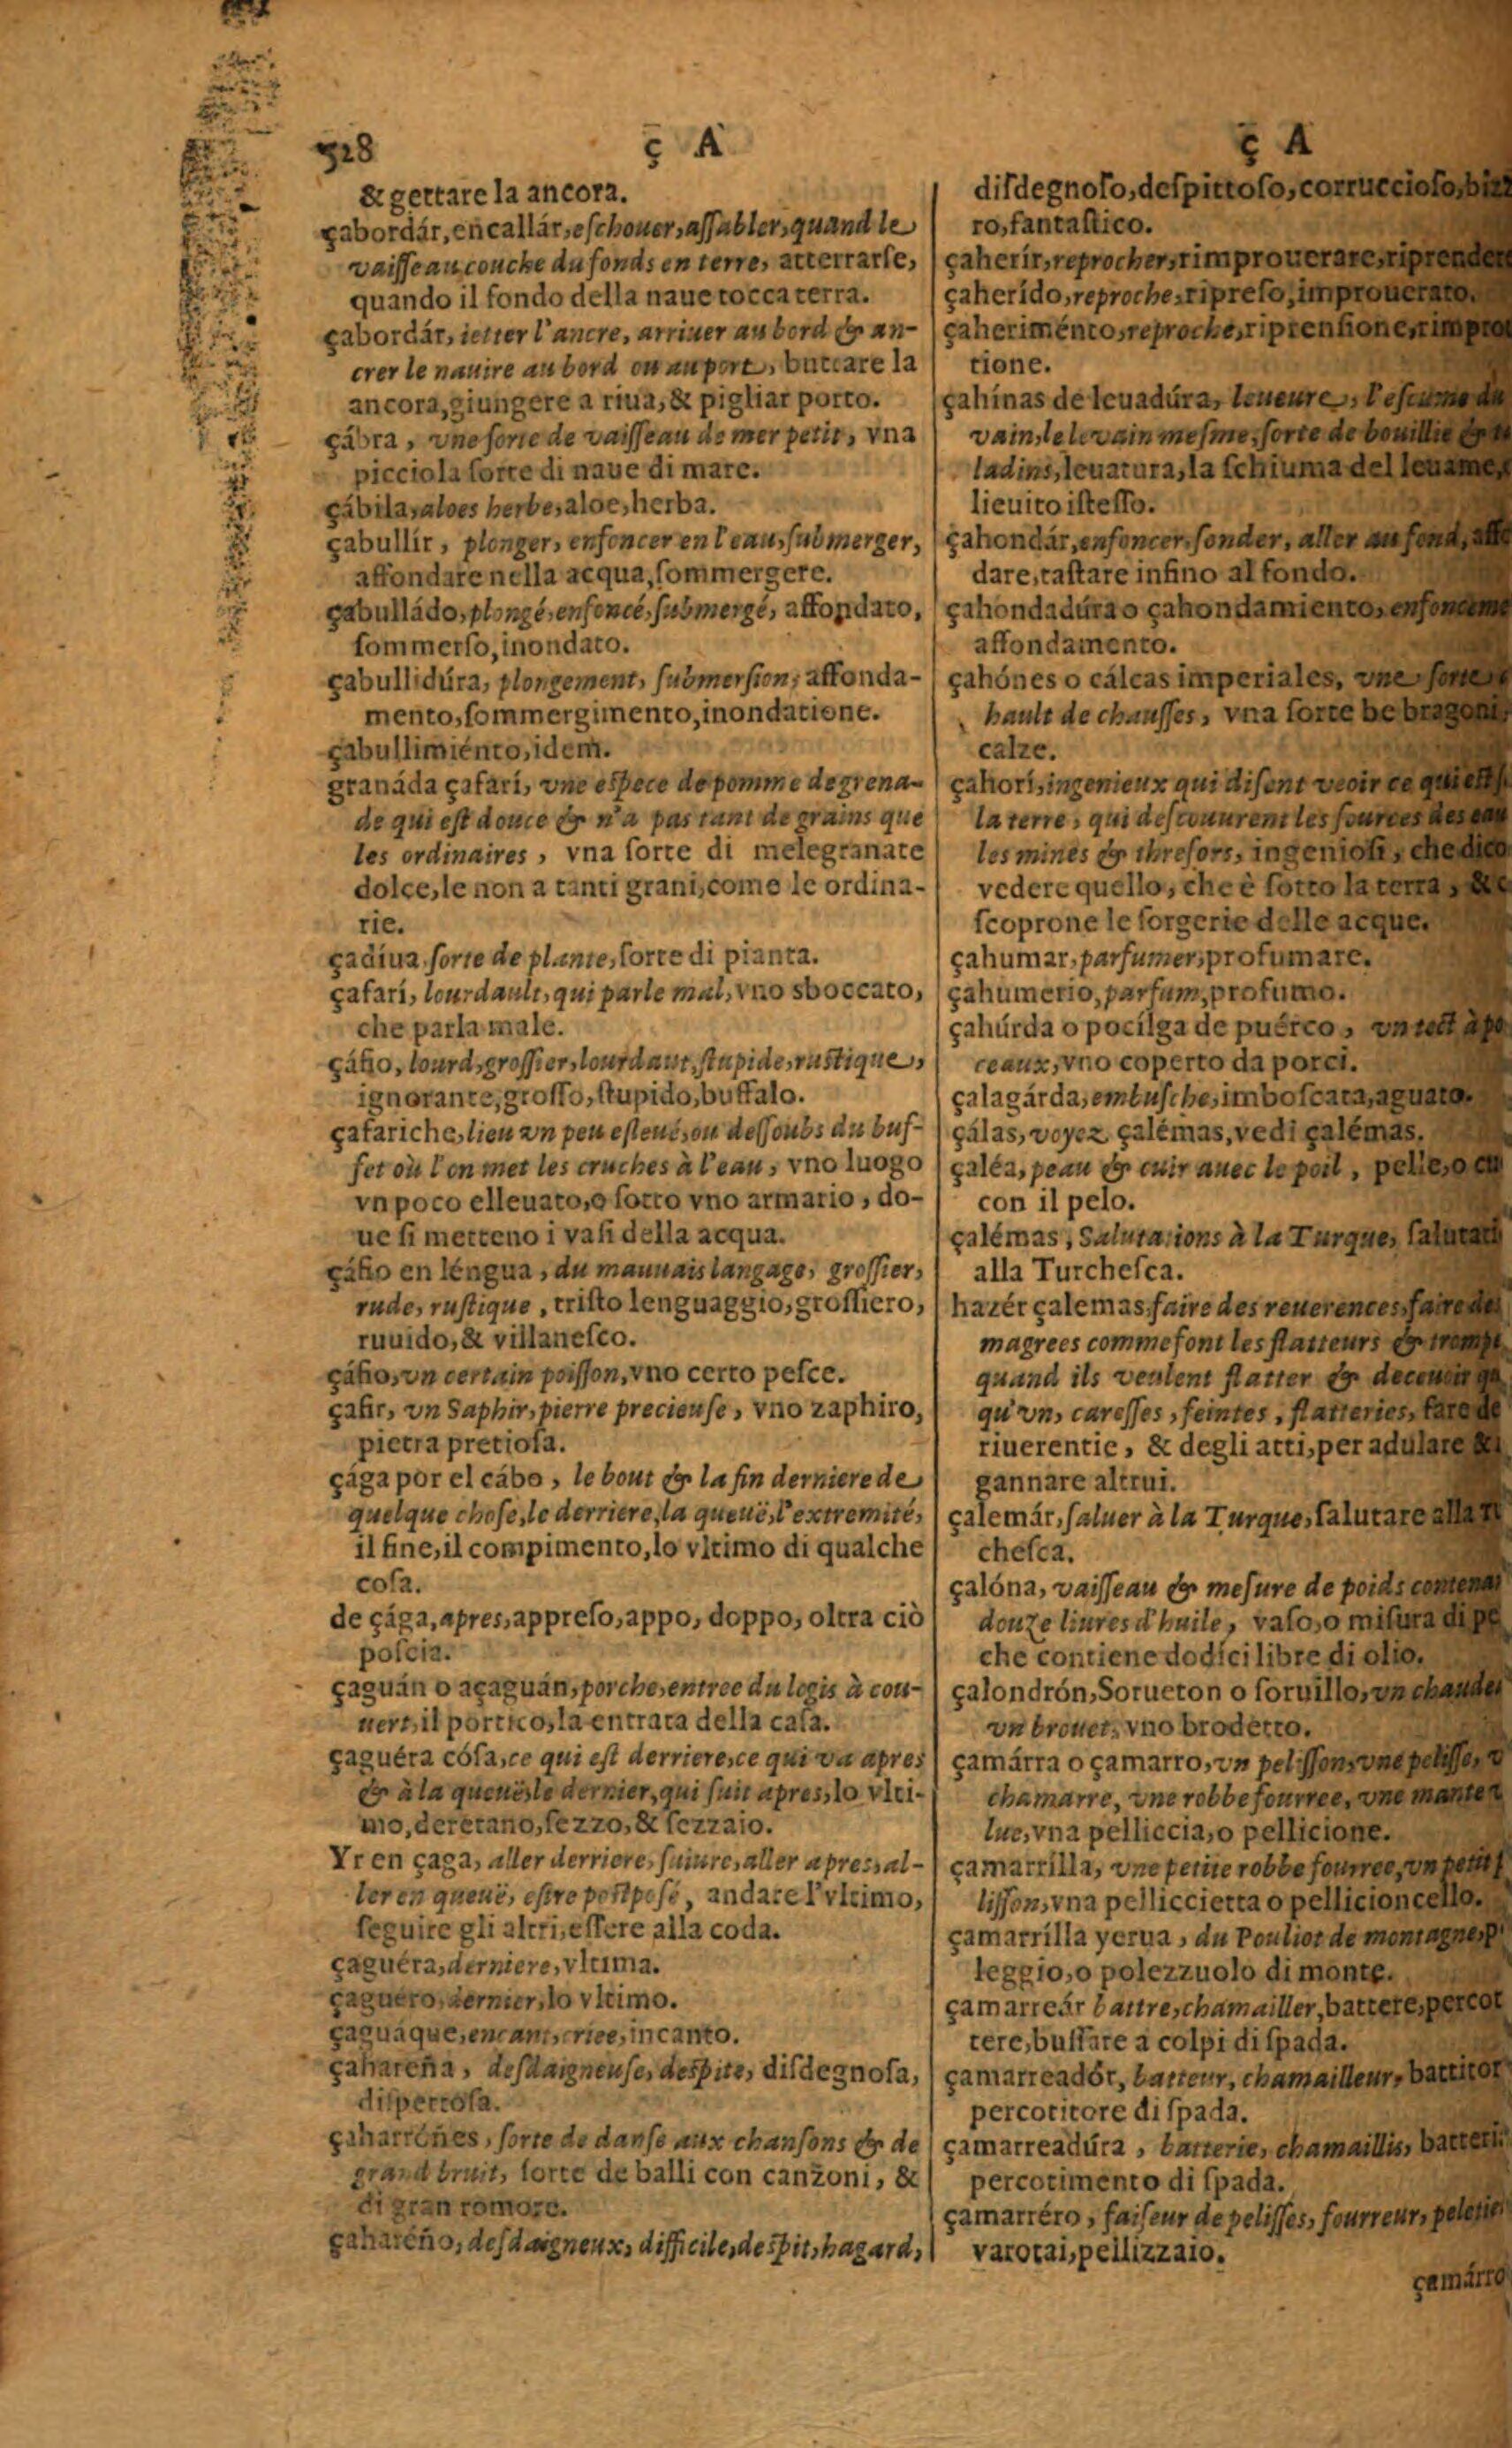 528 ç A
& gettare la ancora.
çabordár, encallár, eſchouer, aſſabler, quand le
vaiſſeau couche du fonds en terre, atterrarſe,
quando il fondo della naue tocca terra.
çabordár, ietter l'ancre, arriuer au bord & an-
crer le nauire au bord ou au port, buttare la
ancora, giungere a riua, & pigliar porto.
çábra, vne ſorte de vaiſſeau de mer petit, vna
picciola ſorte di naue di mare.
çábila, aloes herbe, aloe, herba.
çabullír, plonger, enfoncer en l'eau, ſubmerger,
affondare nella acqua, ſommergere.
çabulládo, plongé, enfoncé, ſubmergé, affondato,
ſommerſo, inondato.
çabullidúra, plongement, ſubmerſion, affonda-
mento, ſommergimento, inondatione.
çabullimiénto, idem.
granáda çafarí, vne eſpece de pomme de grena-
de qui eſt douce & n'a pas tant de grains que
les ordinaires, vna ſorte di melegranate
dolce, le non a tanti grani, come le ordina-
rie.
çadíua ſorte de plante, ſorte di pianta.
çafarí, lourdault, qui parle mal, vno sboccato,
che parla male.
çáfio, lourd, groſſier, lourdaut, ſtupide, ruſtique,
ignorante, groſſo, ſtupido, buffalo.
çafariche, lieu vn peu eſleué, ou deſſoubs du buf-
fet où l'on met les cruches à l'eau, vno luogo
vn poco elleuato, o ſotto vno armario, do-
ue ſi metteno i vaſi della acqua.
çáfio en léngua, du mauuais langage, groſſier,
rude, ruſtique, triſto lenguaggio, groſſiero,
ruuido, & villaneſco.
çáfio, vn certain poiſſon, vno certo peſce.
çafir, vn Saphir, pierre precieuſe, vno zaphiro,
pietra pretioſa.
çága por el cábo, le bout & la fin derniere de
quelque choſe, le derriere, la queuë, l'extremité,
il fine, il compimento, lo vltimo di qualche
coſa.
de çága, apres, appreſo, appo, doppo, oltra ciò
poſcia.
çaguán o açaguán, porche, entree du logis à cou-
uert, il portico, la entrata della caſa.
çaguéra cóſa, ce qui eſt derriere, ce qui va apres
& à la queuë, le dernier, qui ſuit apres, lo vlti-
mo, deretano, ſezzo, & ſezzaio.
Yr en çaga, aller derriere, ſuiure, aller apres, al-
ler en queuë, eſtre poſtpoſé, andare l'vltimo,
ſeguire gli altri, eſſere alla coda.
çaguéra, derniere, vltima.
çaguéro, dernier, lo vltimo.
çaguáque, encant, criee, incanto.
çahareña, deſdaigneuſe, deſpite, diſdegnoſa,
diſpettoſa.
çaharréñes, ſorte de danſe aux chanſons & de
grand bruit, ſorte de balli con canzoni, &
di gran romore.
çaharéño, deſdaigneux, difficile, deſpit, hagard,
ç A
diſdegnoſo, deſpittoſo, corruccioſo,
ro, fantaſtico.
çaherír, reprocher, rimprouerare, riprendere
çaherído, reproche, ripreſo, improuerato.
çaheriménto, reproche, riprenſione,
tione.
çahínas de leuadúra, leueure, l'eſcume du
vain, le levain meſme, ſorte de bouillie &
ladins, leuatura, la ſchiuma del leuame,
lieuito iſteſſo.
çahondár, enfoncer, ſonder, aller au fond,
dare, taſtare infino al fondo.
çahondadúra o çahondamiento,
affondamento.
çahónes o cálcas imperiales, vne ſorte
hault de chauſſes, vna ſorte be bragoni,
calze.
çahorí, ingenieux qui diſent veoir ce qui eſt
la terre, qui deſcouurent les ſources des eau
les mines & threſors, ingenioſi, che dico
vedere quello, che è ſotto la terra, &
ſcoprone le ſorgerie delle acque.
çahumar, parfumer, profumare.
çahumerio, parfum, profumo.
çahúrda o pocílga de puérco, vn tect à po
ceaux, vno coperto da porci.
çalagárda, embuſche, imboſcata, aguato.
çálas, voyez çalémas, vedi çalémas.
çaléa, peau & cuir auec le poil, pelle, o cu
con il pelo.
çalémas, Salutations à la Turque, ſalutati
alla Turcheſca.
hazér çalemas, faire des reuerences, faire des
magrees comme font les flatteurs & trompe
quand ils veulent flatter & deceuoir
qu'vn, careſſes, feintes, flatteries, fare de
riuerentie, & degli atti, per adulare &
gannare altrui.
çalemár, ſaluer à la Turque, ſalutare alla
cheſca.
çalóna, vaiſſeau & meſure de poids contenan
douze liures d'huile, vaſo, o miſura di pe
che contiene dodíci libre di olio.
çalondrón, Sorueton o ſoruillo, vn chaudea
vn brouet, vno brodetto.
çamárra o çamarro, vn peliſſon, vne peliſſe,
chamarre, vne robbe fourree, vne mante
lue, vna pelliccia, o pellicione.
çamarrílla, vne petite robbe fourree, vn petit
liſſon, vna pelliccietta o pellicioncello.
çamarrílla yerua, du Pouliot de montagne,
leggio, o polezzuolo di monte.
çamarreár battre, chamailler, battere, percot
tere, buſſare a colpi di ſpada.
çamarreadór, batteur, chamailleur, battitor
percotitore di ſpada.
çamarreadúra, batterie, chamaillis, batteri
percotimento di ſpada.
çamarréro, faiſeur de peliſſes, fourreur, peletier
varotai, pellizzaio.
çamárro